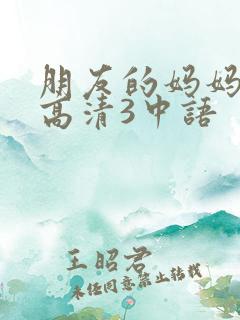 朋友的妈妈
高清3中語
王昭君
未经同意禁止转载